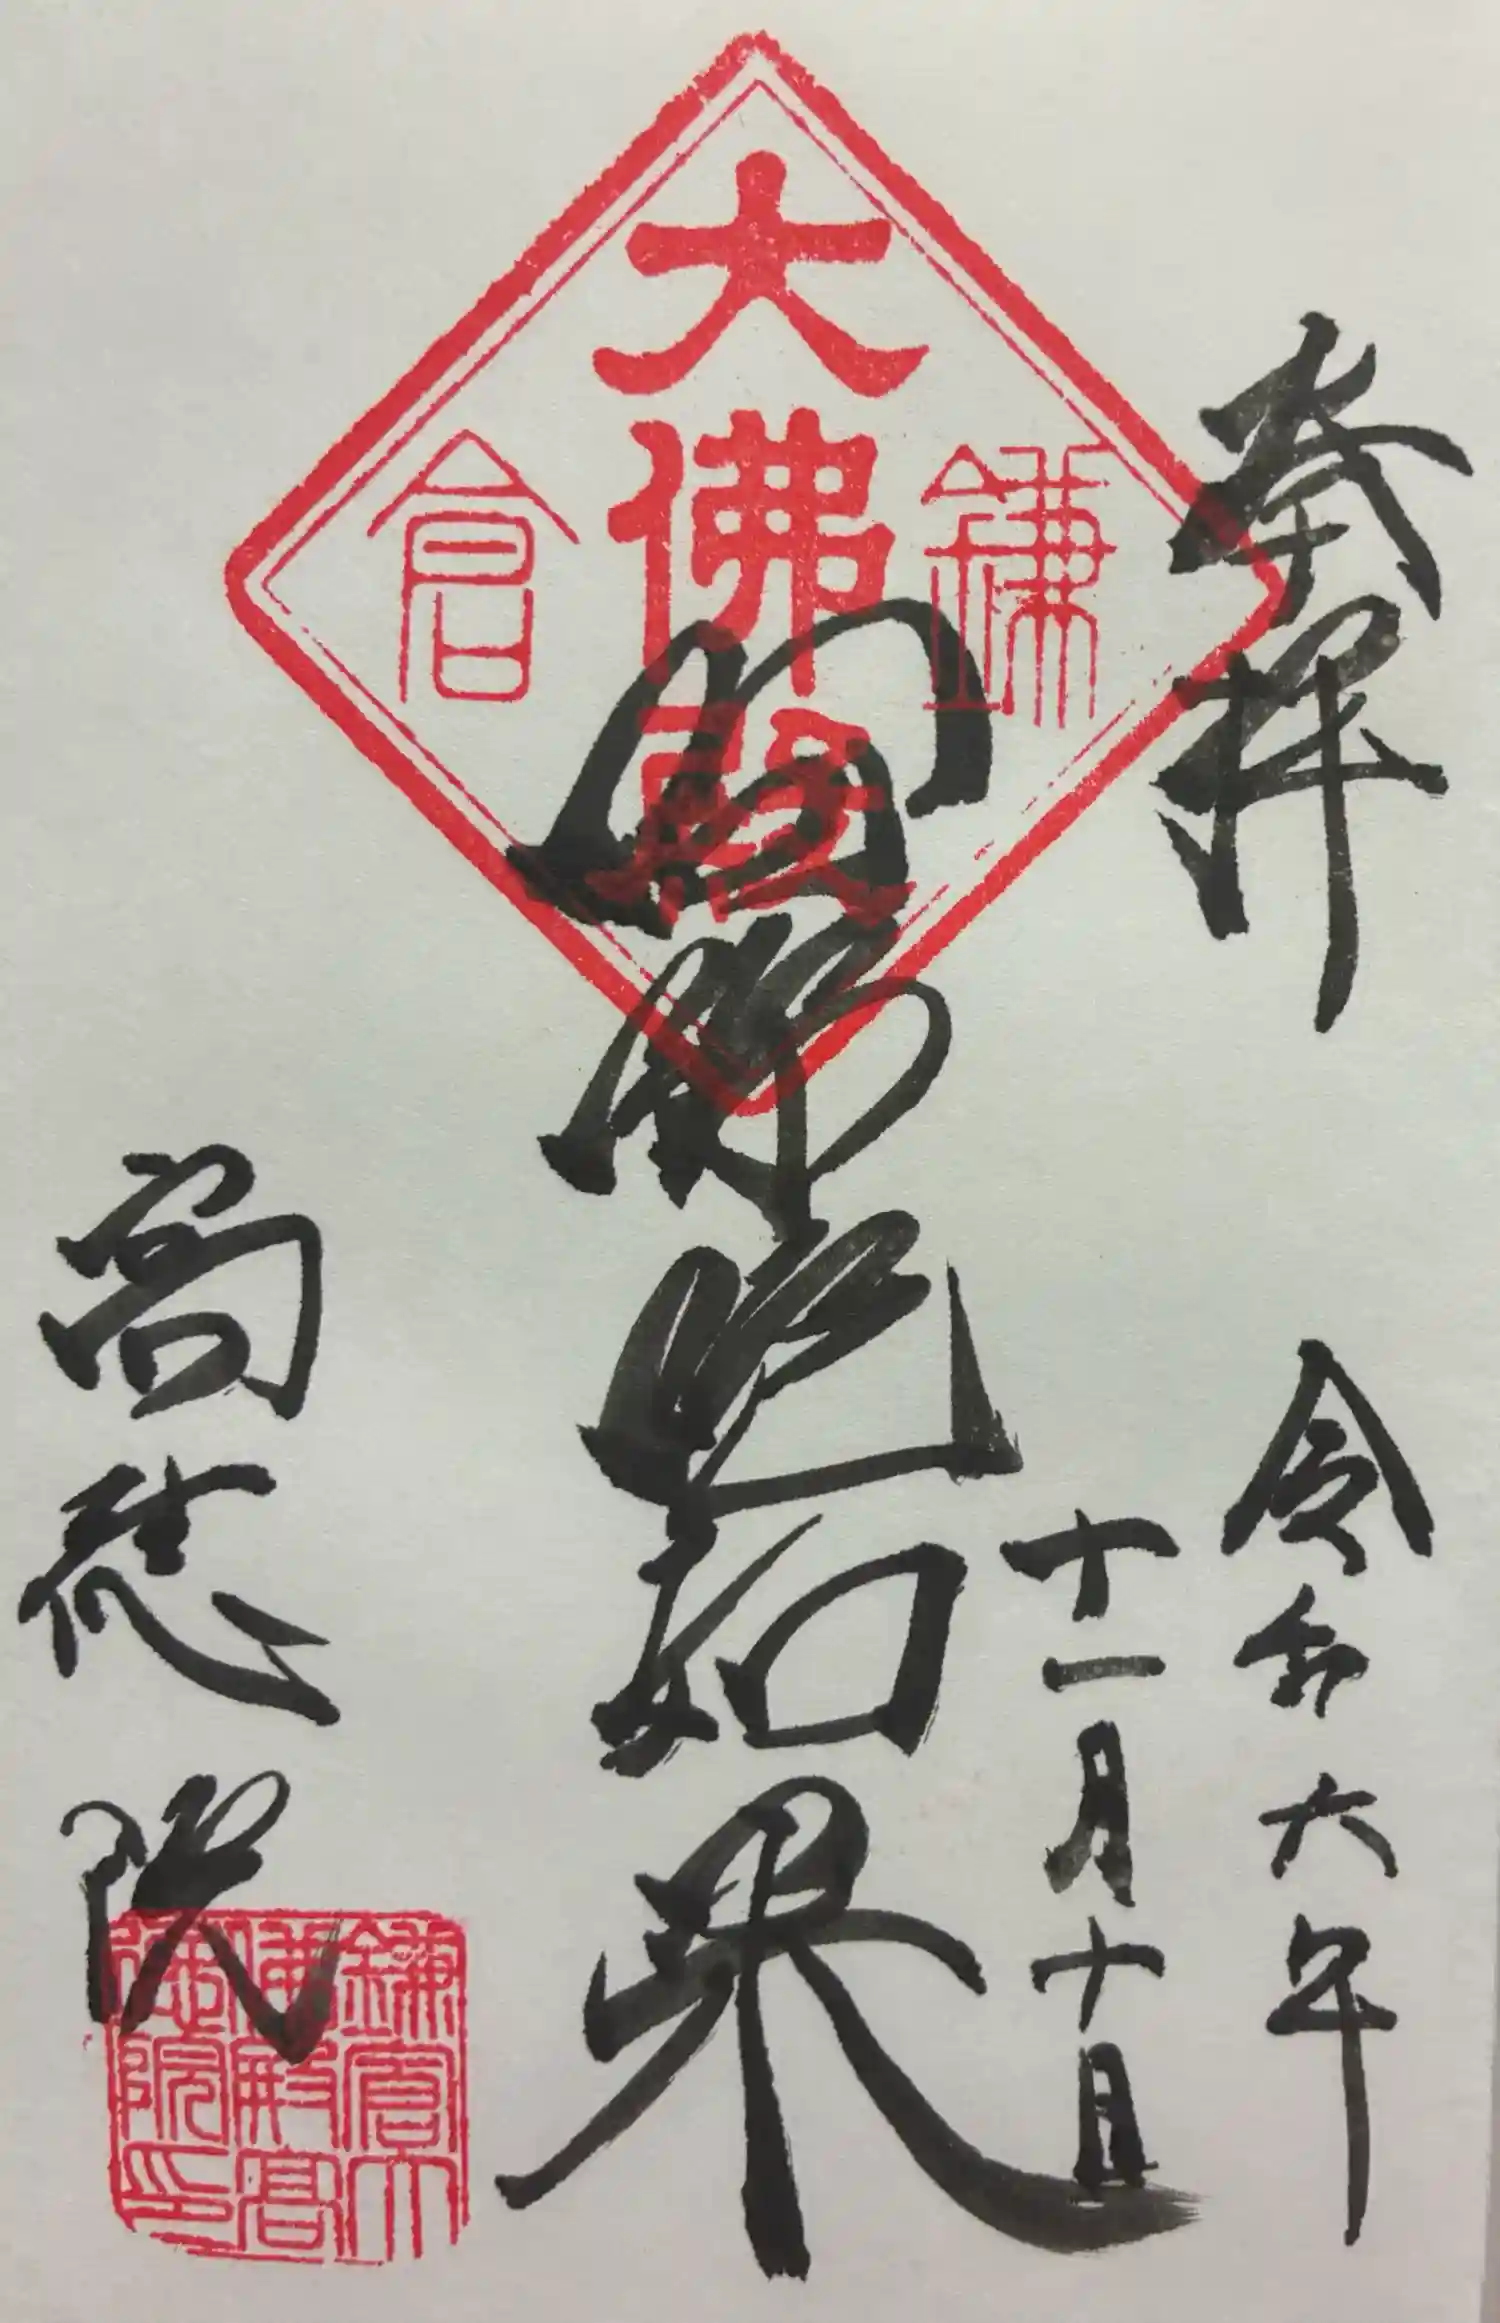 奉拝
令和六年
十一月十日
鎌倉
大佛殿
阿弥陀如来
高徳院
鎌倉大
佛殿高
徳院印